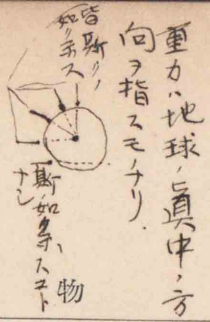 重力ハ地球ノ眞中ノ方
向ヲ指スモノナリ.
皆斯クノ
如ク示ス
斯ノ如キ
ナシ
物